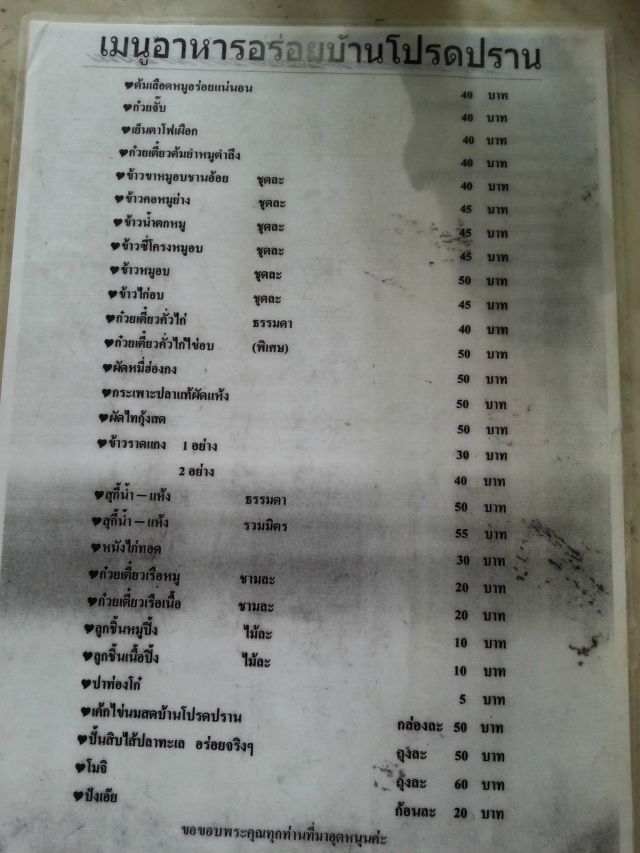 เมนูอาหารอร่อยบ้านโปรดปราน
♥ต้มเลือดหมูอร่อยแน่นอน 40 บาท
♥ก๋วยจั๊บ 40 บาท
♥เย็นตาโฟเผือก 40 บาท
♥ก๋วยเตี๋ยวต้มยำหมูตำลึง 40 บาท
♥ข้าวขาหมูอบชานอ้อย ชุดละ 40 บาท
♥ข้าวคอหมูย่าง ชุดละ 45 บาท
♥ข้าวน้ำตกหมู ชุดละ 45 บาท
♥ข้าวซี่โครงหมูอบ ชุดละ 45 บาท
♥ข้าวหมูอบ ชุดละ 50 บาท
♥ข้าวไก่อบ ชุดละ 45 บาท
♥ก๋วยเตี๋ยวคั่วไก่ ธรรมดา 40 บาท
♥ก๋วยเตี๋ยวคั่วไก่ไข่อบ (พิเศษ) 50 บาท
♥ผัดหมี่ฮ่องกง 50 บาท
♥กระเพาะปลาแท้ผัดแห้ง 50 บาท
♥ผัดไทกุ้งสด 50 บาท
♥ข้าวราดแกง 1 อย่าง 30 บาท
2 อย่าง 40 บาท
♥สุกี้น้ำ – แห้ง ธรรมดา 50 บาท
♥สุกี้น้ำ – แห้ง รวมมิตร 55 บาท
♥หนังไก่ทอด 30 บาท
♥ก๋วยเตี๋ยวเรือหมู ชามละ 20 บาท
♥ก๋วยเตี๋ยวเรือเนื้อ ชามละ 20 บาท
♥ลูกชิ้นหมูปิ้ง ไม้ละ 10 บาท
♥ลูกชิ้นเนื้อปิ้ง ไม้ละ 10 บาท
♥ปาท่องโก๋ 5 บาท
♥เค้กไข่นมสดบ้านโปรดปราน กล่องละ 50 บาท
♥ปั้นสิบไส้ปลาทะเล อร่อยจริงๆ ถุงละ 50 บาท
♥โมจิ ถุงละ 60 บาท
♥ปังเอ๊ย ก้อนละ 20 บาท
ขอขอบพระคุณทุกท่านที่มาอุดหนุนค่ะ